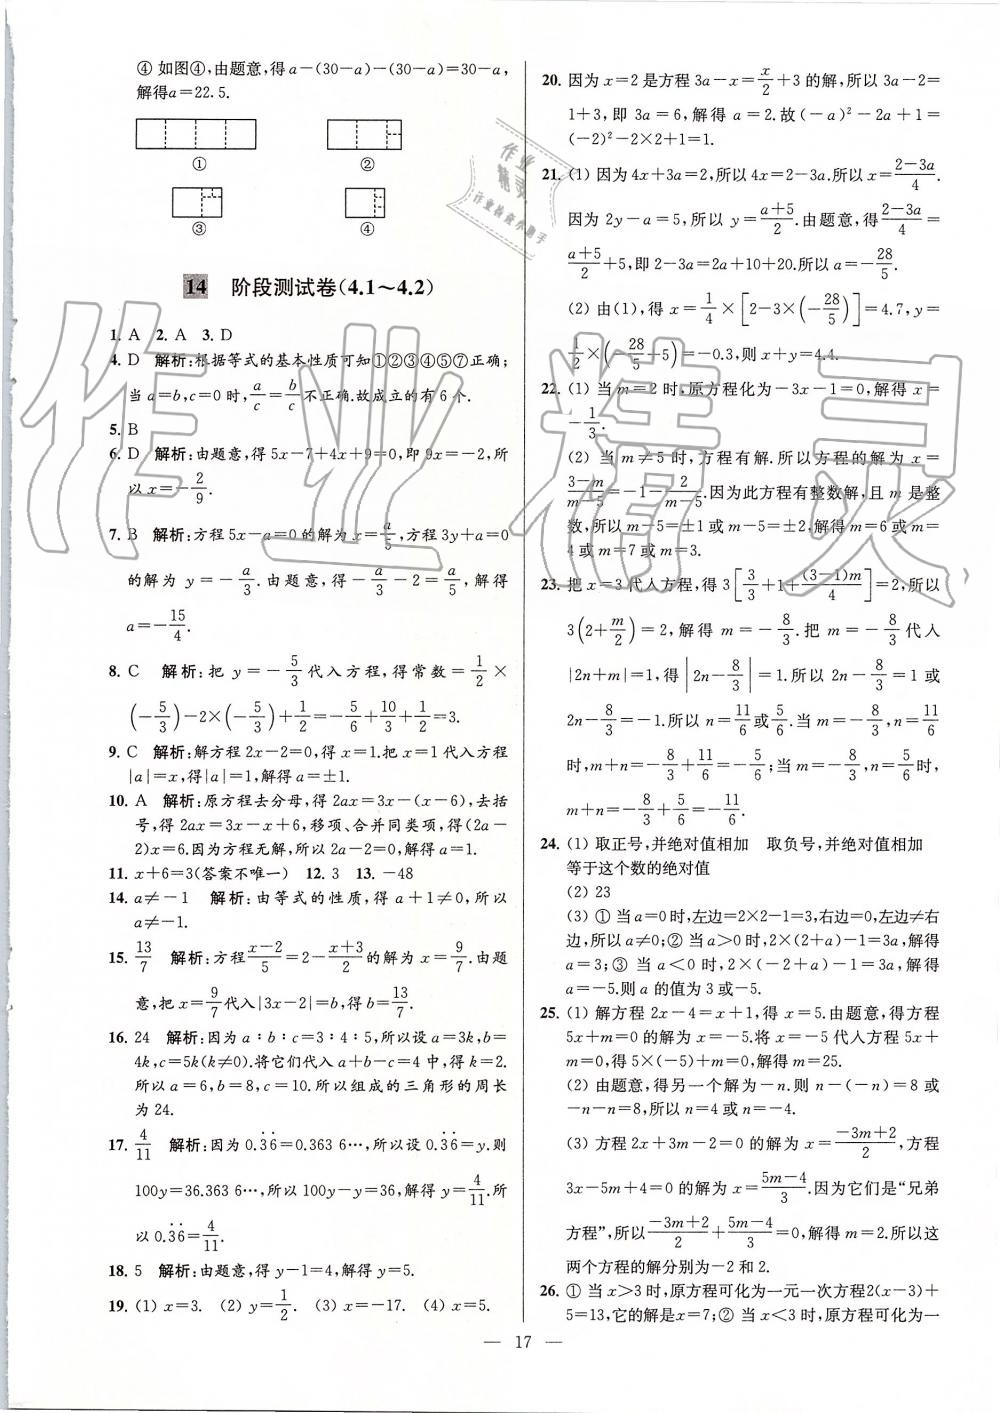 ④ 如图④,由题意,得a-(30-a)-(30-a)=30-a,
解得a=22.5.
① ②
③ ④
14 阶段测试卷(4.1～4.2)
1. A 2. A 3. D
4. D 解析:根据等式的基本性质可知①②③④⑤⑦正确;
当a=b,c=0时,a/c=b/c不正确.故成立的有6个.
5. B
6. D 解析:由题意,得5x-7+4x+9=0,即9x=-2,所
以x=-2/9.
7. B 解析:方程5x-a=0的解为x=a/5,方程3y+a=0
的解为y=-a/3.由题意,得-a/3-2=a/5,解得
a=-15/4.
8. C 解析:把y=-5/3代入方程,得常数=1/2×
(-5/3)-2×(-5/3)+1/2=-5/6+10/3+1/2=3.
9. C 解析:解方程2x-2=0,得x=1.把x=1代入方程
|a|=x,得|a|=1,解得a=±1.
10. A 解析:原方程去分母,得2ax=3x-(x-6),去括
号,得2ax=3x-x+6,移项、合并同类项,得(2a-
2)x=6.因为方程无解,所以2a-2=0,解得a=1.
11. x+6=3(答案不唯一) 12. 3 13. -48
14. a≠-1 解析:由等式的性质,得a+1≠0,所以
a≠-1.
15. 13/7 解析:方程(x-2)/5=2-(x+3)/2的解为x=9/7.由题
意,把x=9/7代入|3x-2|=b,得b=13/7.
16. 24 解析:因为a∶b∶c=3∶4∶5,所以设a=3k,b=
4k,c=5k(k≠0).将它们代入a+b-c=4中,得k=2.
所以a=6,b=8,c=10.所以组成的三角形的周长
为24.
17. 4/11 解析:因为0.3̇6̇=0.363 6⋯,所以设0.3̇6̇=y.则
100y=36.363 6⋯,所以100y-y=36,解得y=4/11.所
以0.3̇6̇=4/11.
18. 5 解析:由题意,得y-1=4,解得y=5.
19. (1) x=3. (2) y=1/2. (3) x=-17. (4) x=5.
20. 因为x=2是方程3a-x=x/2+3的解,所以3a-2=
1+3,即3a=6,解得a=2.故(-a)²-2a+1=
(-2)²-2×2+1=1.
21. (1) 因为4x+3a=2,所以4x=2-3a.所以x=(2-3a)/4.
因为2y-a=5,所以y=(a+5)/2.由题意,得(2-3a)/4=
(a+5)/2+5,即2-3a=2a+10+20.所以a=-28/5.
(2) 由(1),得x=1/4×[2-3×(-28/5)]=4.7,y=
1/2×(-28/5+5)=-0.3,则x+y=4.4.
22. (1) 当m=2时,原方程化为-3x-1=0,解得x=
-1/3.
(2) 当m≠5时,方程有解.所以方程的解为x=
(3-m)/(m-5)=-1-2/(m-5).因为此方程有整数解,且m是整
数,所以m-5=±1或m-5=±2,解得m=6或m=
4或m=7或m=3.
23. 把x=3代入方程,得3[3/3+1+(3-1)m/4]=2,所以
3(2+m/2)=2,解得m=-8/3.把m=-8/3代入
|2n+m|=1,得|2n-8/3|=1.所以2n-8/3=1或
2n-8/3=-1.所以n=11/6或5/6.当m=-8/3,n=11/6
时,m+n=-8/3+11/6=-5/6;当m=-8/3,n=5/6时,
m+n=-8/3+5/6=-11/6.
24. (1) 取正号,并绝对值相加 取负号,并绝对值相加
等于这个数的绝对值
(2) 23
(3) ① 当a=0时,左边=2×2-1=3,右边=0,左边≠右
边,所以a≠0;② 当a>0时,2×(2+a)-1=3a,解得
a=3;③ 当a<0时,2×(-2+a)-1=3a,解得
a=-5.则a的值为3或-5.
25. (1) 解方程2x-4=x+1,得x=5.由题意,得方程
5x+m=0的解为x=-5.将x=-5代入方程5x+
m=0,得5×(-5)+m=0,解得m=25.
(2) 由题意,得另一个解为-n.则n-(-n)=8或
-n-n=8,所以n=4或n=-4.
(3) 方程2x+3m-2=0的解为x=(-3m+2)/2,方程
3x-5m+4=0的解为x=(5m-4)/3.因为它们是“兄弟
方程”,所以(-3m+2)/2+(5m-4)/3=0,解得m=2.所以这
两个方程的解分别为-2和2.
26. ① 当x>3时,原方程可化为一元一次方程2(x-3)+
5=13,它的解是x=7;② 当x<3时,原方程可化为一
— 17 —
作业精灵